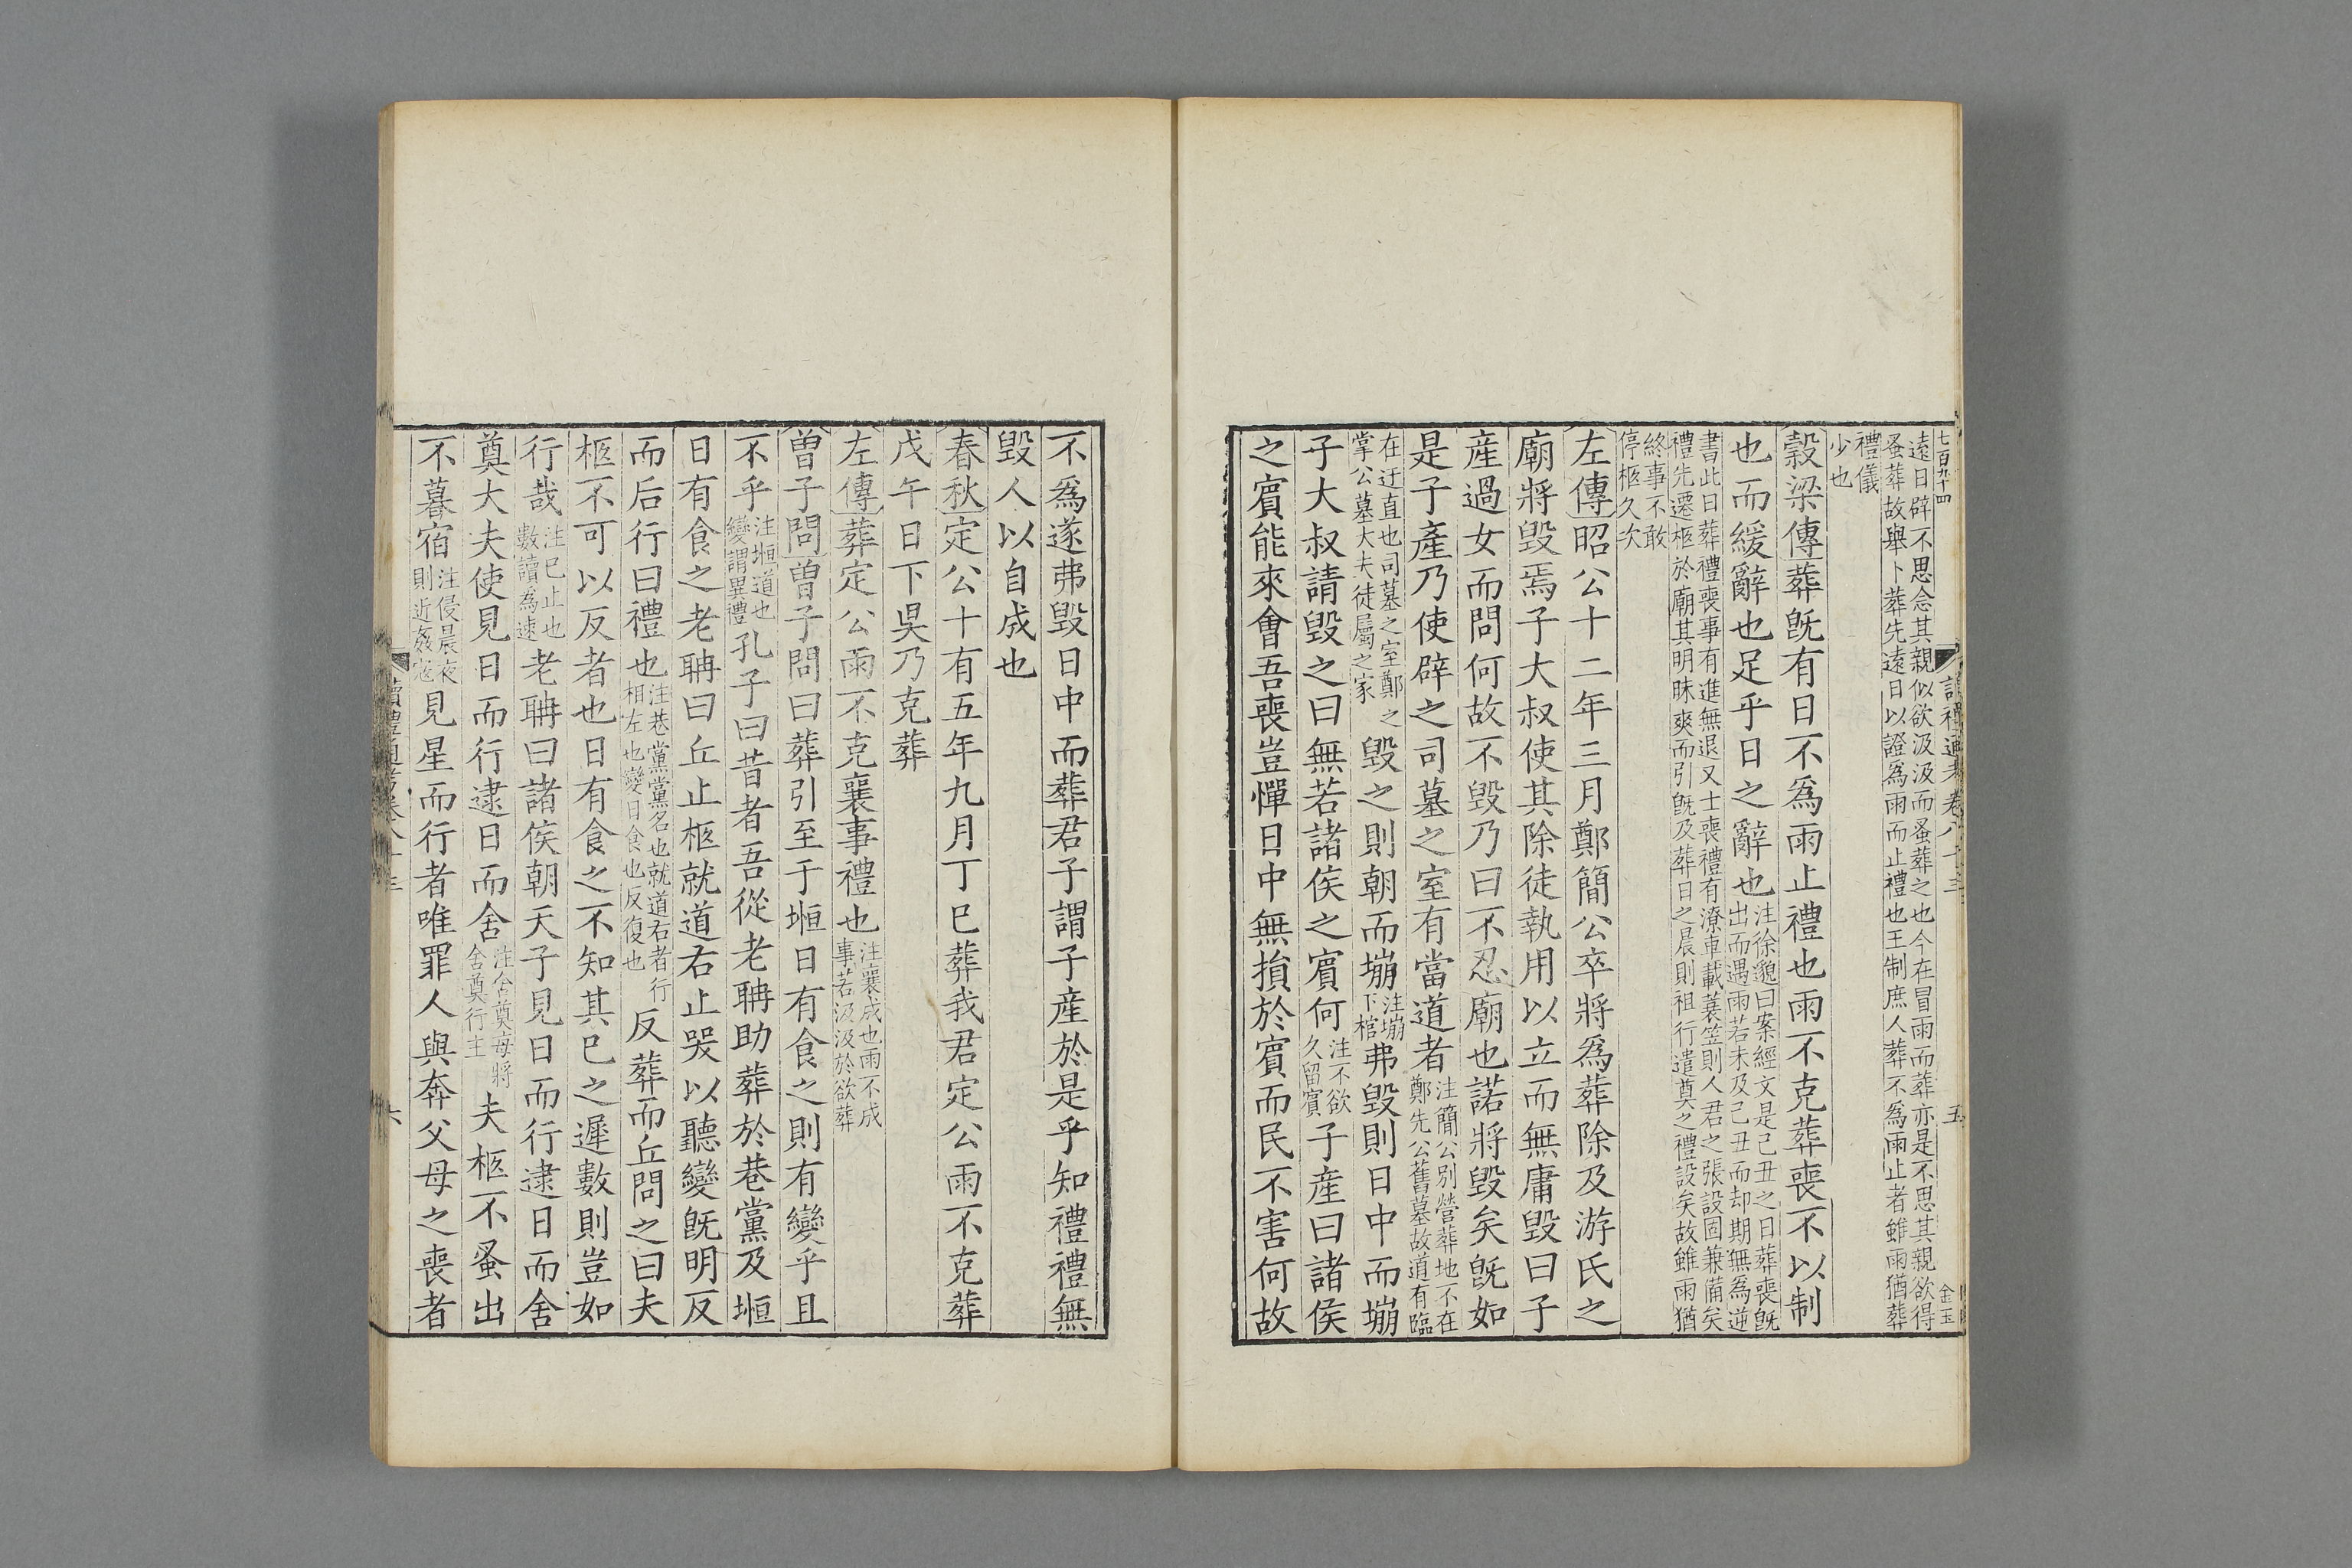 七百九十四
讀禮通考卷八十三
五
金玉
遠日辟不思念其親似欲汲汲而蚤葬之也今在冒雨而葬亦是不思其親欲得
蚤葬故舉卜葬先遠日以證爲雨而止禮也王制庶人葬不爲雨止者雖雨猶葬
禮儀
少也
穀梁傳葬旣有日不爲雨止禮也雨不克葬喪不以制
也而緩辭也足乎日之辭也注徐邈曰案經文是己丑之日葬喪旣
出而遇雨若未及己丑而却期無爲逆
書此日葬禮喪事有進無退又士喪禮有潦車載蓑笠則人君之張設固兼備矣
禮先遷柩於廟其明昧爽而引旣及葬日之晨則祖行遣奠之禮設矣故雖雨猶
終事不敢
停柩久次
左傳昭公十二年三月鄭簡公卒將爲葬除及游氏之
廟將毀焉子大叔使其除徒執用以立而無庸毀曰子
産過女而問何故不毀乃曰不忍廟也諾將毀矣旣如
是子産乃使辟之司墓之室有當道者注簡公別營葬地不在
鄭先公舊墓故道有臨
在迂直也司墓之室鄭之
掌公墓大夫徒屬之家
毀之則朝而塴注塴
下棺
弗毀則日中而塴
子大叔請毀之曰無若諸侯之賓何注不欲
久留賓
子産曰諸侯
之賓能來會吾喪豈憚日中無損於賓而民不害何故
不爲遂弗毀日中而葬君子謂子産於是乎知禮禮無
毀人以自成也
春秋定公十有五年九月丁巳葬我君定公雨不克葬
戊午日下昃乃克葬
左傳葬定公雨不克襄事禮也注襄成也雨不成
事若汲汲於欲葬
曾子問曾子問曰葬引至于堩日有食之則有變乎且
不乎注堩道也
變謂異禮
孔子曰昔者吾從老聃助葬於巷黨及堩
日有食之老聃曰丘止柩就道右止哭以聽變旣明反
而后行曰禮也注巷黨黨名也就道右者行
相左也變日食也反復也
反葬而丘問之曰夫
柩不可以反者也日有食之不知其已之遲數則豈如
行哉注已止也
數讀爲速
老聃曰諸侯朝天子見日而行逮日而舍
奠大夫使見日而行逮日而舍注舍奠每將
舍奠行主
夫柩不蚤出
不暮宿注侵晨夜
則近姦寇
見星而行者唯罪人與奔父母之喪者
讀禮通考卷八十三
六